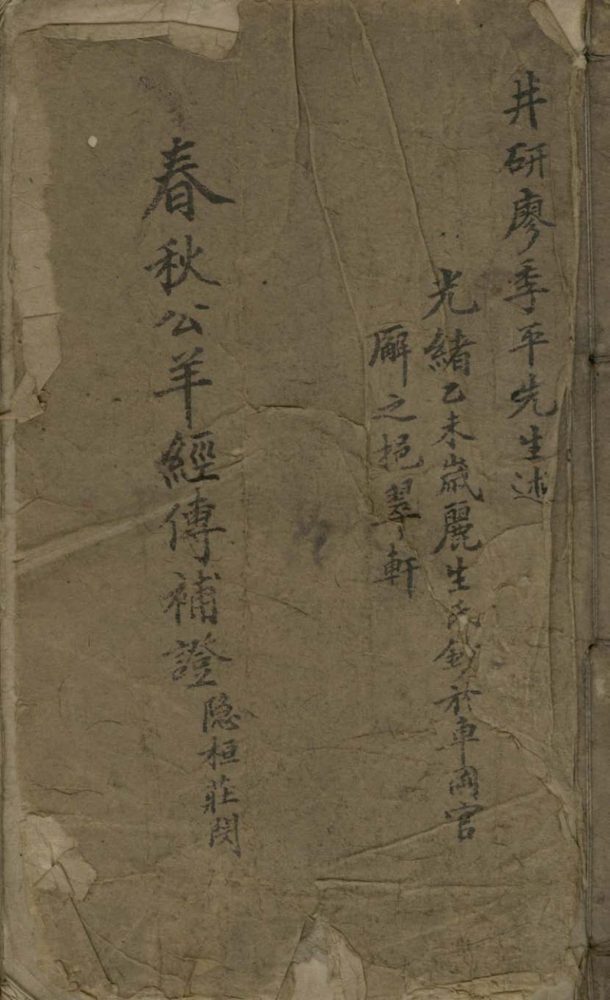 井研廖季平先生述
光緒乙未歲麗生氏鈔於車岡官
廨之挹翠軒
春秋公羊經傳補證 隐桓莊閔